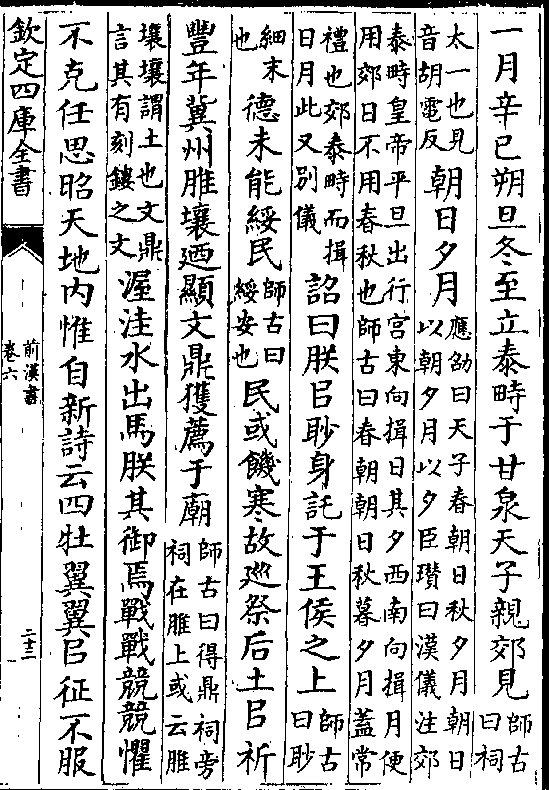 一月辛巳朔旦冬至立泰畤于甘泉天子親郊見師古曰祠
太一也見音胡電反朝日夕月應劭曰天子春朝日秋夕月朝日以朝夕月以夕臣瓚曰漢儀注郊
泰畤皇帝平旦出行宫東向揖日其夕西南向揖月便用郊日不用春秋也師古曰春朝朝日秋暮夕月蓋常
禮也郊泰畤而揖日月此又别儀詔曰朕㠯眇身託于王侯之上師古曰眇
細末也德未能綏民師古曰綏安也民或饑寒故巡祭后土㠯祈
豐年冀州脽壤廼顯文鼎獲薦于廟師古曰得鼎祠旁祠在脽上或云脽
壤壤謂土也文鼎言其有刻鏤之文渥洼水出馬朕其御焉戰戰兢兢懼
不克任思昭天地内惟自新詩云四牡翼翼㠯征不服
欽定四庫全書
前漢書
卷六
二十三